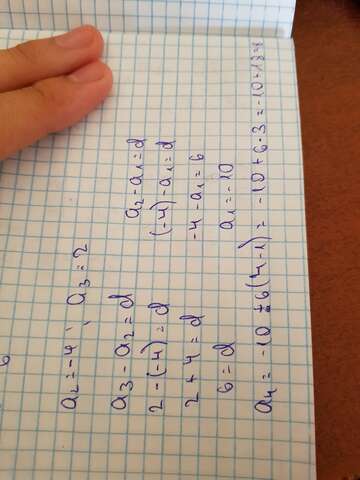 a₂ = -4 ; a₃ = 2
a₃ - a₂ = d
2 - (-4) = d
2 + 4 = d
6 = d
a₂ - a₁ = d
(-4) - a₁ = d
-4 - a₁ = 6
a₁ = -10
a₄ = -10 + 6(4-1) = -10 + 6·3 = -10+18=8
6